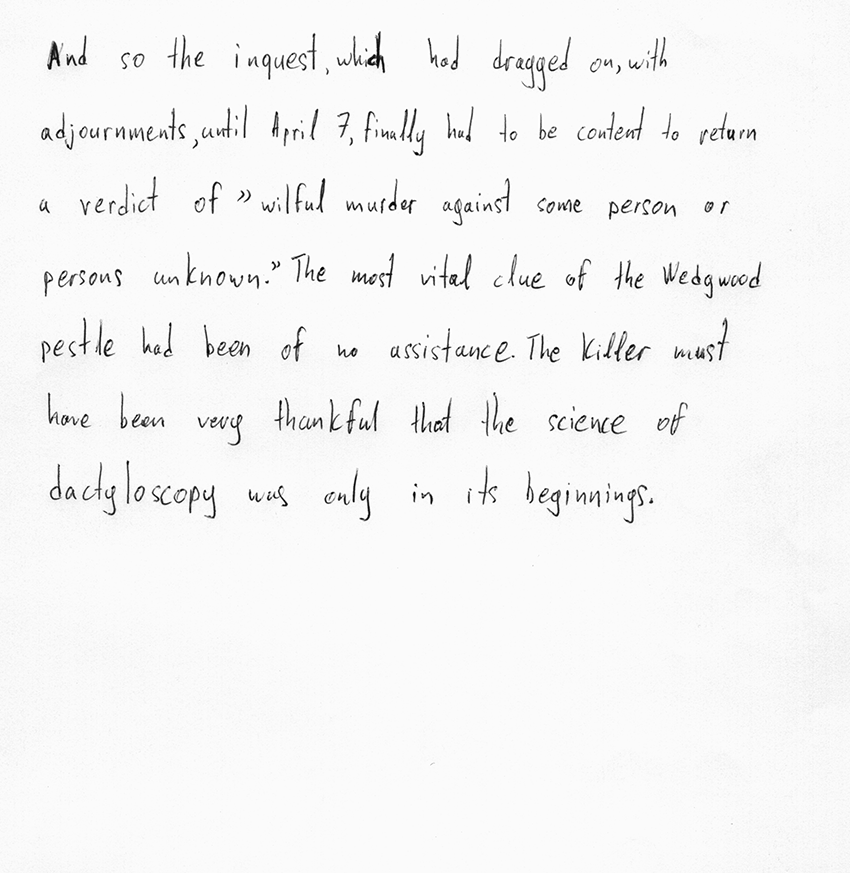 And so the inquest, which had dragged on, with
adjournments, until April 7, finally had to be content to return
a verdict of " wilful murder against some person or
persons unknown." The most vital clue of the Wedgwood
pestle had been of no assistance. The killer must
have been very thankful that the science of
dactyloscopy was only in its beginnings.